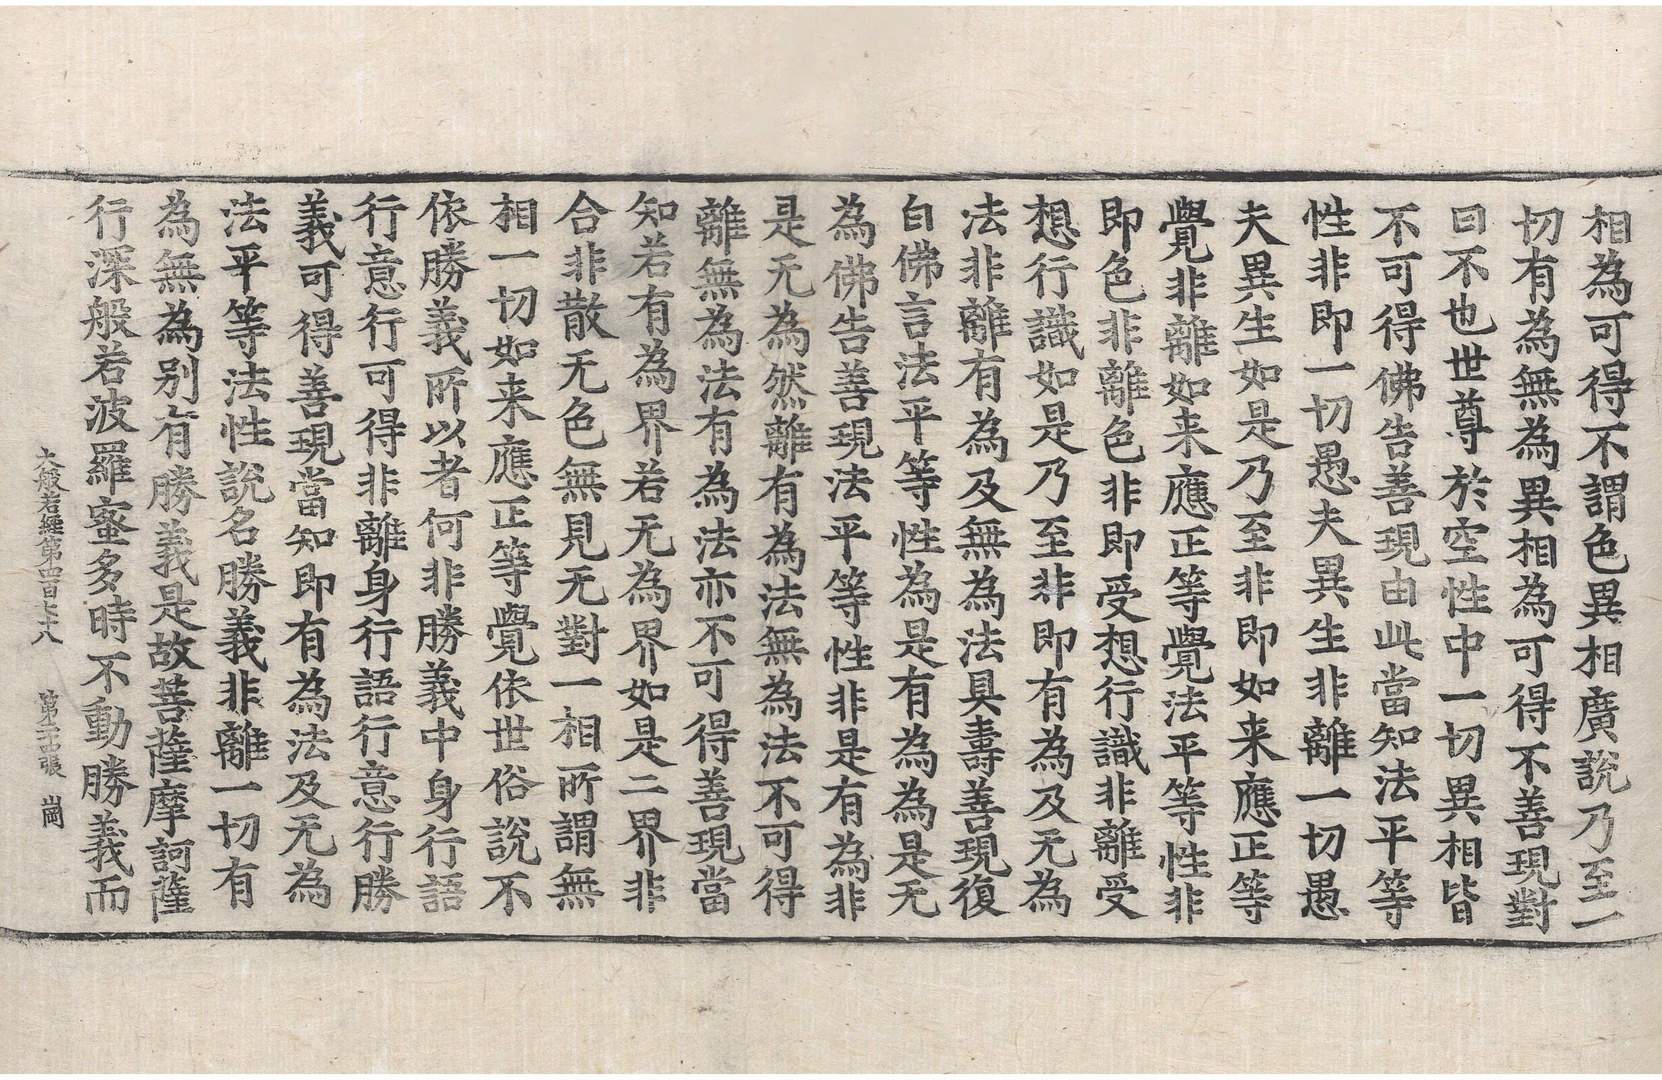 相為可得不謂色異相廣說乃至一
切有為無為異相為可得不善現對
曰不也世尊於空性中一切異相皆
不可得佛告善現由此當知法平等
性非即一切愚夫異生非離一切愚
夫異生如是乃至非即如来應正等
覺非離如来應正等覺法平等性非
即色非離色非即受想行識非離受
想行識如是乃至非即有為及无為
法非離有為及無為法具壽善現復
白佛言法平等性為是有為為是无
為佛告善現法平等性非是有為非
是无為然離有為法無為法不可得
離無為法有為法亦不可得善現當
知若有為界若无為界如是二界非
合非散无色無見无對一相所謂無
相一切如来應正等覺依世俗說不
依勝義所以者何非勝義中身行語
行意行可得非離身行語行意行勝
義可得善現當知即有為法及无為
法平等法性說名勝義非離一切有
為無為别有勝義是故菩薩摩訶薩
行深般若波羅蜜多時不動勝義而
大般若經第四百七十八 第張 崗